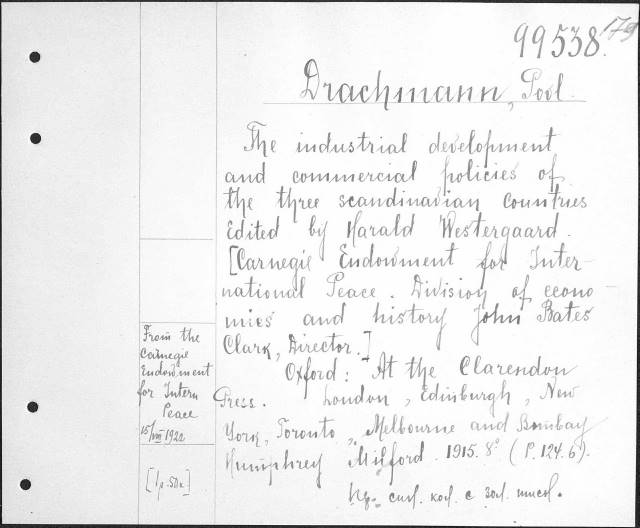 99538. 179
Drachmann, Povl.
The industrial development
and commercial policies of
the three scandinavian countries
Edited by Harald Westergaard.
[Carnegie Endowment for Inter-
national Peace. Division of econo-
mics and history John Bates
Clark, Director.]
Oxford: At the Clarendon
Press. London, Edinburgh, New
York, Toronto, Melbourne and Bombay
Humphrey Milford. 1915. 8° (P. 124. 6).
кож. с зол. тисн.
From the
Carnegie
Endowment
for Intern
Peace
15/VIII 1922